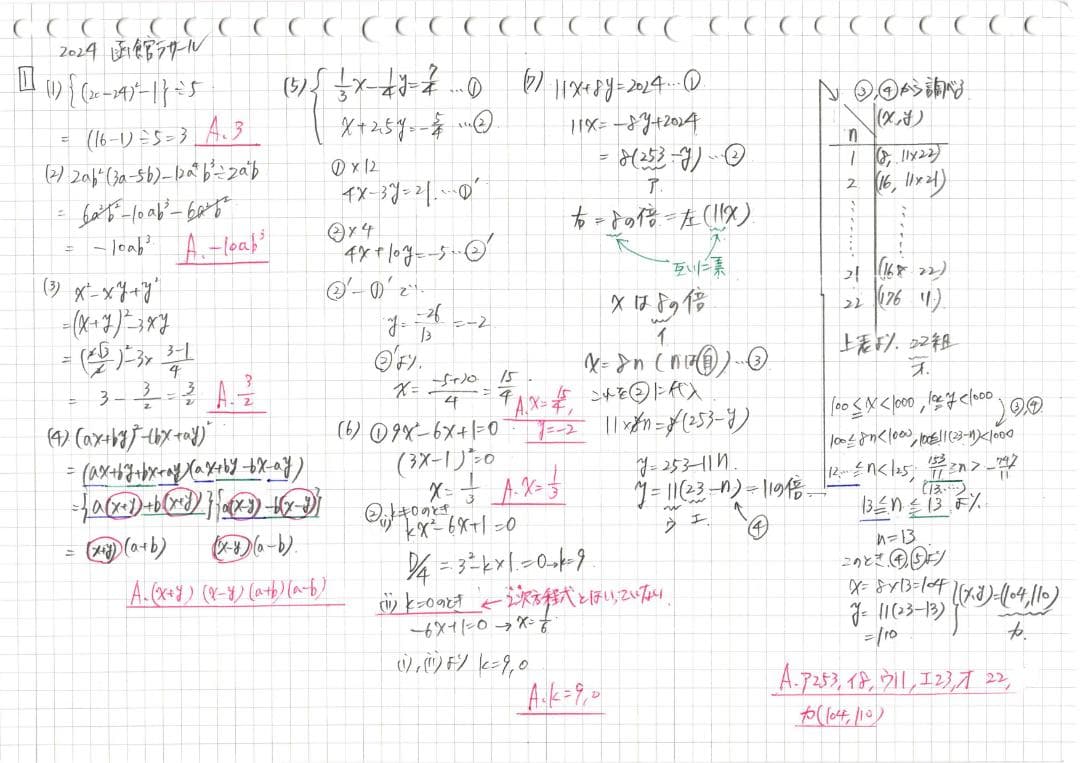 2024 函館ラサール
1
(1) {(20-24)²-1}÷5
= (16-1)÷5=3 A.3
(2) 2ab²(3a-5b)-12a⁴b³÷2a²b
= 6a²b²-10ab³-6a²b²
= -10ab³ A.-10ab³
(3) x²-xy+y²
=(x+y)²-3xy
= (2√3/2)²-3× 3-1/4
= 3 - 3/2 = 3/2 A. 3/2
(4) (ax+by)²-(bx+ay)²
=(ax+by+bx+ay)(ax+by-bx-ay)
={a(x+y)+b(x+y)}{a(x-y)-b(x-y)}
= (x+y)(a+b) (x-y)(a-b)
A.(x+y)(x-y)(a+b)(a-b)
(5) { 1/3x-1/4y=7/4 …①
x+2.5y=-5/4 …②
①×12
4x-3y=21…①'
②×4
4x+10y=-5…②'
②'-①'より
y= -26/13 =-2
②'より
x= -5+20/4 = 15/4
A.x=15/4,
y=-2
(6) ①9x²-6x+1=0
(3x-1)²=0
x=1/3 A.x=1/3
②
(i) k≠0のとき
kx²-6x+1=0
D/4 =3²-k×1=0→k=9
(ii) k=0のとき ←2次方程式とはいっていない
-6x+1=0→x=1/6
(i),(ii)より k=9,0
A.k=9,0
(7) 11x+8y=2024…①
11x=-8y+2024
= 8(253-y)…②
ア
右=8の倍=左(11x)
互いに素
xは8の倍
イ
x=8n (nは自)…③
これを②に代入
11×8n=8(253-y)
y=253-11n
y=11(23-n)=11の倍
ウ エ
④
③,④から調べる
n (x,y)
1 (8, 11×22)
2 (16, 11×21)
21 (168 22)
22 (176 11)
上表より. 22組
オ
100≦x<1000, 100≦y<1000
③,④
100≦8n<1000, 100≦11(23-n)<1000
12…≦n<125, 153/11≧n>-747/11
(13…)
13≦n≦13 より
n=13
このとき④,⑤より
x=8×13=104
y= 11(23-13)
=110
(x,y)=(104,110)
カ
A.ア253,イ8,ウ11,エ23,オ 22,
カ(104,110)